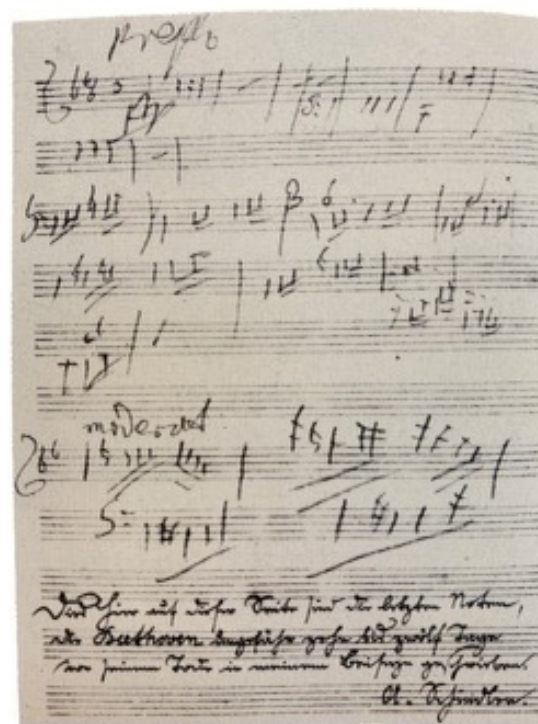 presto
moderato
hier auf dieser Seite sind die letzten Noten,
die Beethoven ungefähr zehn bis zwölf Tage
vor seinem Tode in meinem Beiseyn geschrieben.
A. Schindler.